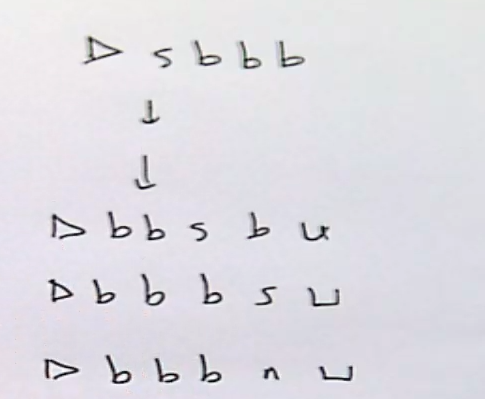 ▷ s b b b
↓
↓
▷ b b s b ⊔
▷ b b b s ⊔
▷ b b b n ⊔